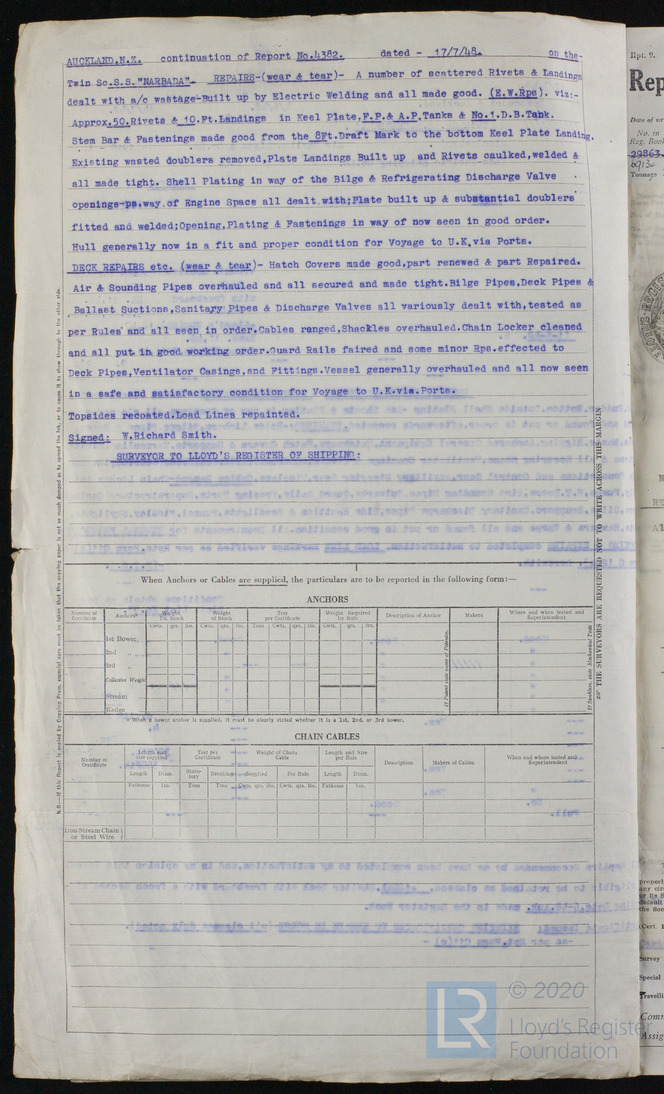 AUCKLAND.N.Z. continuation of Report No.4382. dated - 17/7/48. on the-
Twin Sc.S.S."NARBADA". REPAIRS-(wear & tear)- A number of scattered Rivets & Landings
dealt with a/c wastage-Built up by Electric Welding and all made good. (E.W.Rps). viz:-
Approx.50.Rivets & 10.Ft.Landings in Keel Plate,F.P.& A.P.Tanks & No.1.D.B.Tank.
Stem Bar & Fastenings made good from the 8Ft.Draft Mark to the bottom Keel Plate Landing.
Existing wasted doublers removed,Plate Landings Built up and Rivets caulked,welded &
all made tight. Shell Plating in way of the Bilge & Refrigerating Discharge Valve
openings-ps.way of Engine Space all dealt with;Plate built up & substantial doublers
fitted and welded;Opening,Plating & Fastenings in way of now seen in good order.
Hull generally now in a fit and proper condition for Voyage to U.K,via Ports.
DECK REPAIRS etc. (wear & tear)- Hatch Covers made good,part renewed & part Repaired.
Air & Sounding Pipes overhauled and all secured and made tight.Bilge Pipes,Deck Pipes &
Ballast Suctions,Sanitary Pipes & Discharge Valves all variously dealt with,tested as
per Rules and all seen in order.Cables ranged,Shackles overhauled.Chain Locker cleaned
and all put in good working order.Guard Rails faired and some minor Rps.effected to
Deck Pipes,Ventilator Casings,and Fittings.Vessel generally overhauled and all now seen
in a safe and satisfactory condition for Voyage to U.K.via.Ports.
Topsides recoated.Load Lines repainted.
Signed: W.Richard Smith.
SURVEYOR TO LLOYD'S REGISTER OF SHIPPING:
When Anchors or Cables are supplied, the particulars are to be reported in the following form:—
ANCHORS
Number of Certificate Anchors* Weight Ex. Stock Weight of Stock Test per Certificate Weight Required by Rule Description of Anchor Makers Where and when tested and Superintendent
Cwts. qrs. lbs. Cwts. qrs. lbs. Tons Cwts. qrs. lbs. Cwts. qrs. lbs.
1st Bower
2nd "
3rd "
Collective Weight
Stream
Kedge
* When a bower anchor is supplied, it must be clearly stated whether it is a 1st, 2nd, or 3rd bower.
CHAIN CABLES
Number of Certificate Length and size supplied Test per Certificate Weight of Chain Cable Length and Size per Rule Description Makers of Cables When and where tested and Superintendent
Length Diam. Statutory Breaking Supplied Per Rule Length Diam.
Fathoms Ins. Tons Tons Cwts. qrs. lbs. Cwts. qrs. lbs. Fathoms Ins.
Iron Stream Chain
or Steel Wire
THE SURVEYORS ARE REQUESTED NOT TO WRITE ACROSS THIS MARGIN
Rpt. 9.
Rep
No. in
Reg. Book
29863
Tonnage
© 2020
LR
Lloyd's Register
Foundation
Survey
Special
Travelli
Com
Assig